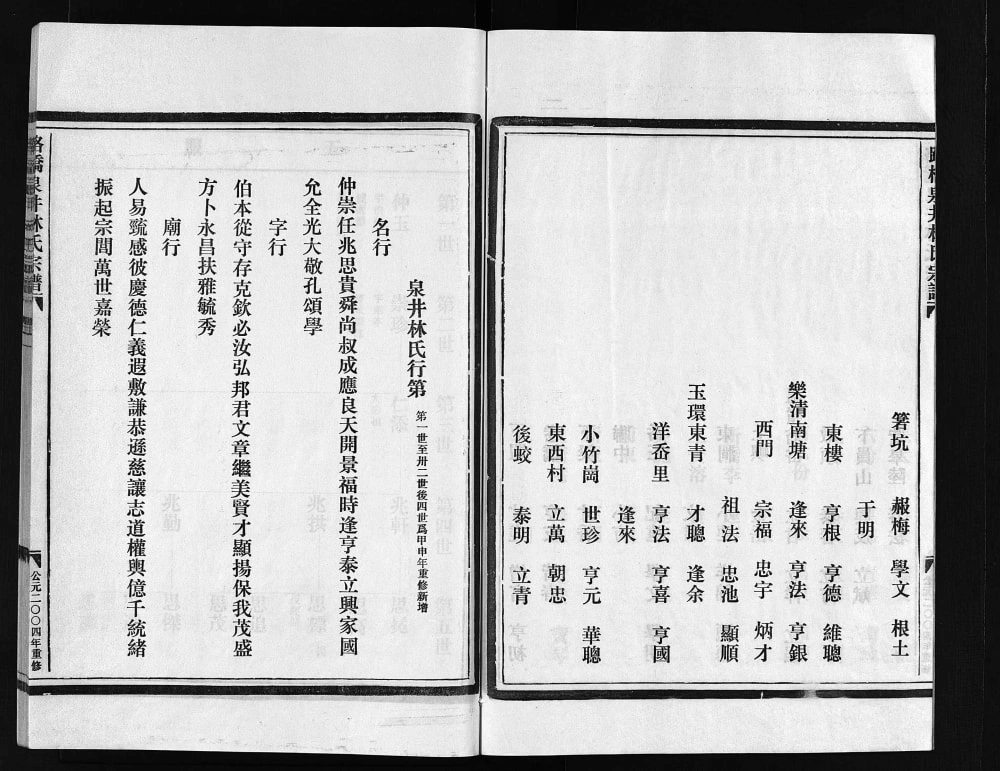 箬坑 赧梅 學文 根土
于明
東樓 亨根 亨德 維聰
樂清南塘 逢來 亨法 亨銀
西門 宗福 忠宇 炳才
祖法 忠池 顯順
玉環東青 才聰 逢余
洋岙里 亨法 亨喜 亨國
逢來
小竹崗 世珍 亨元 華聰
東西村 立萬 朝忠
後蛟 泰明 立青
泉井林氏行第 第一世至卅二世後四世爲甲申年重修新增
名行
仲崇任兆思貴舜尚叔成應良天開景福時逢亨泰立興家國
允全光大敬孔頌學
字行
伯本從守存克欽必汝弘邦君文章繼美賢才顯揚保我茂盛
方卜永昌扶雅毓秀
廟行
人易巯感彼慶德仁義遐敷謙恭遜慈讓志道權輿億千統緒
振起宗閭萬世嘉榮
路橋泉井林氏宗譜
公元二〇〇四年重修